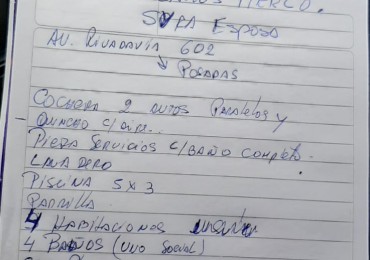 S/PA ESPOSO
AV. RIVADAVIA 602
POSADAS
COCHERA 2 AUTOS PARALELOS Y
QUINCHO C/
PIEZA SERVICIOS C/BAÑO COMPLETO.
LAVADERO
PISCINA 5X3
PARRILLA
4 HABITACIONES
4 BAÑOS (UNO SOCIAL)